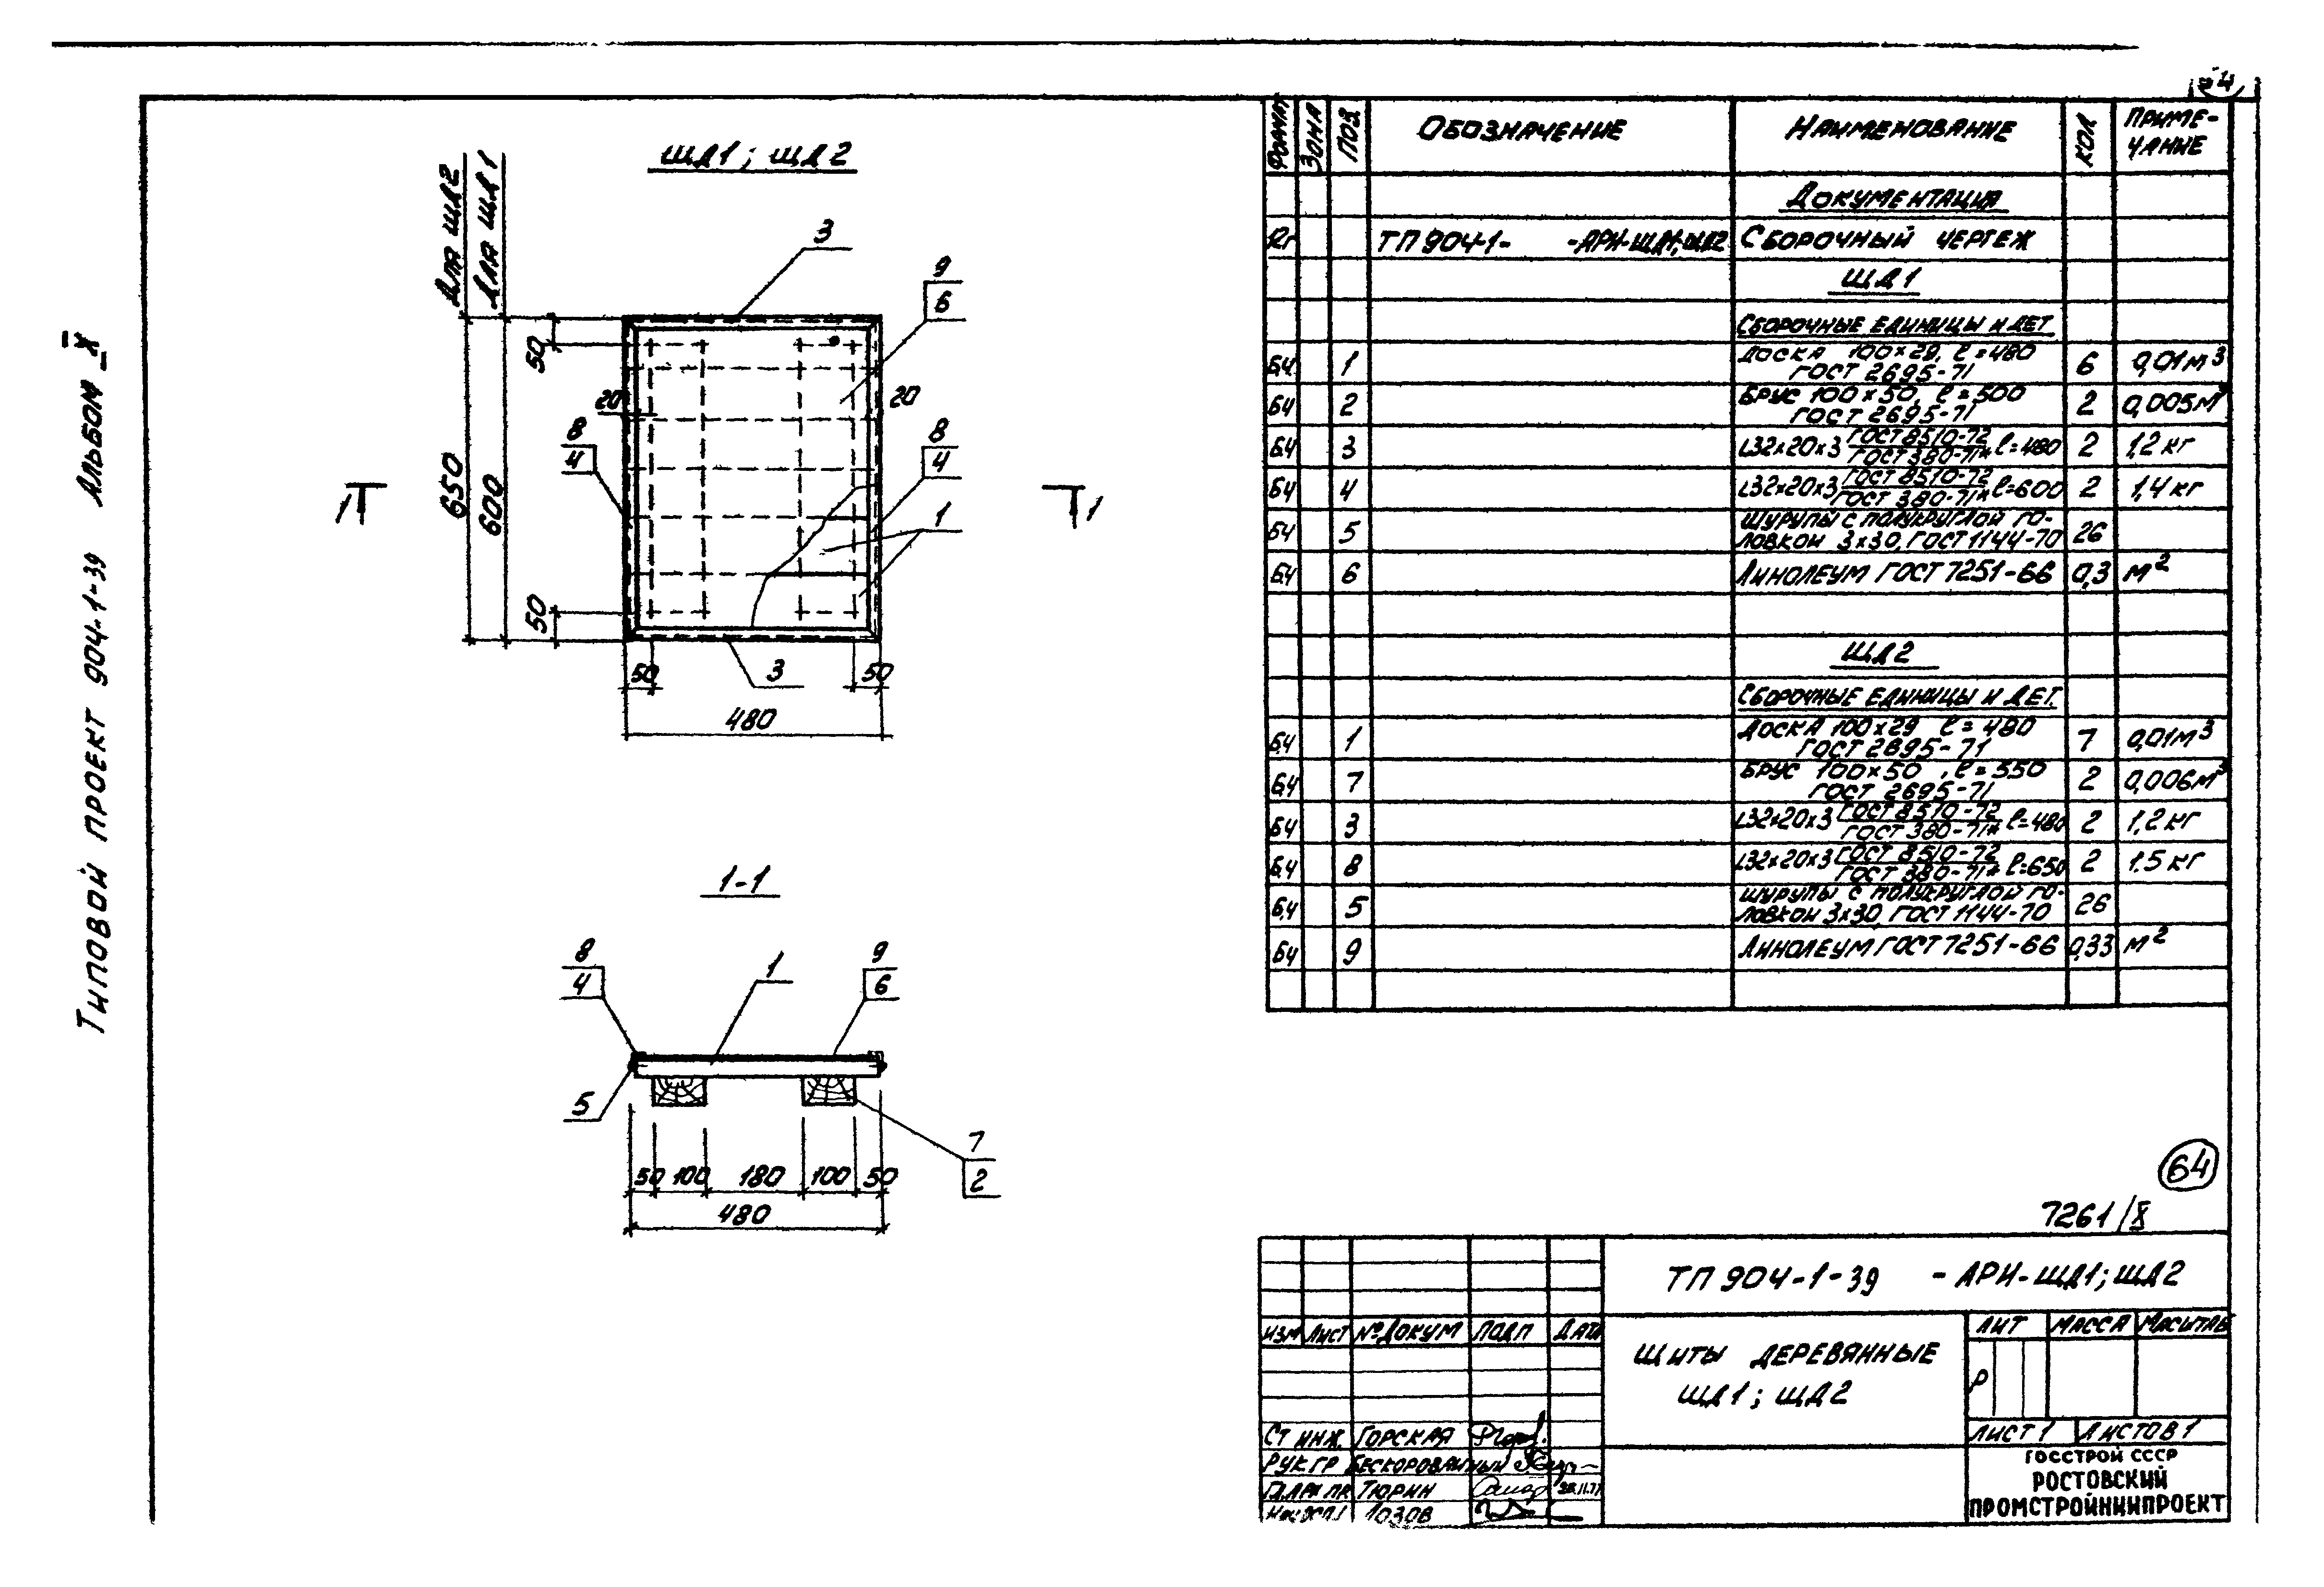 54
Типовой проект 904-1-39 Альбом X
ЩД1; ЩД2
Для ЩД2
Для ЩД1
3
9
6
50
20
20
8
4
8
4
650
600
1
1
1
50
50
3
50
480
1-1
8
4
1
9
6
5
7
2
50 100 180 100 50
480
Формат Зона Поз Обозначение Наименование Кол Приме-
чание
Документация
12г ТП 904-1- -АРИ-ЩД1;ЩД2 Сборочный чертеж
ЩД1
Сборочные единицы и дет.
Б.4 1 Доска 100×29, ℓ=480 6 0,01м³
ГОСТ 2695-71
Б4 2 Брус 100×50, ℓ=500 2 0,005м³
ГОСТ 2695-71
Б4 3 L32×20×3 ГОСТ 8510-72 ℓ=480 2 1,2 кг
ГОСТ 380-71*
Б4 4 L32×20×3 ГОСТ 8510-72 ℓ=600 2 1,4 кг
ГОСТ 380-71*
Б4 5 Шурупы с полукруглой го- 26
ловкой 3×30, ГОСТ 1144-70
Б.4 6 Линолеум ГОСТ 7251-66 0,3 м²
ЩД2
Сборочные единицы и дет.
Б.4 1 Доска 100×29 ℓ=480 7 0,01м³
ГОСТ 2695-71
Б.4 7 Брус 100×50, ℓ=550 2 0,006м³
ГОСТ 2695-71
Б4 3 L32×20×3 ГОСТ 8510-72 ℓ=480 2 1,2кг
ГОСТ 380-71*
Б.4 8 L32×20×3 ГОСТ 8510-72 ℓ=650 2 1.5 кг
ГОСТ 380-71*
Б.4 5 Шурупы с полукруглой го- 26
ловкой 3×30, ГОСТ 1144-70
Б4 9 Линолеум ГОСТ 7251-66 0,33 м²
64
7261/X
ТП 904-1-39 -АРИ-ЩД1; ЩД2
Изм Лист № докум Подп Дата
Щиты деревянные
ЩД1; ЩД2
Лит Масса Масштаб
Р
Лист 1 Листов 1
Ст инж. Горская
Рук.гр Бескоровайный
Гл.арх пр. Тюрин
Лозов
Госстрой СССР
Ростовский
Промстройниипроект